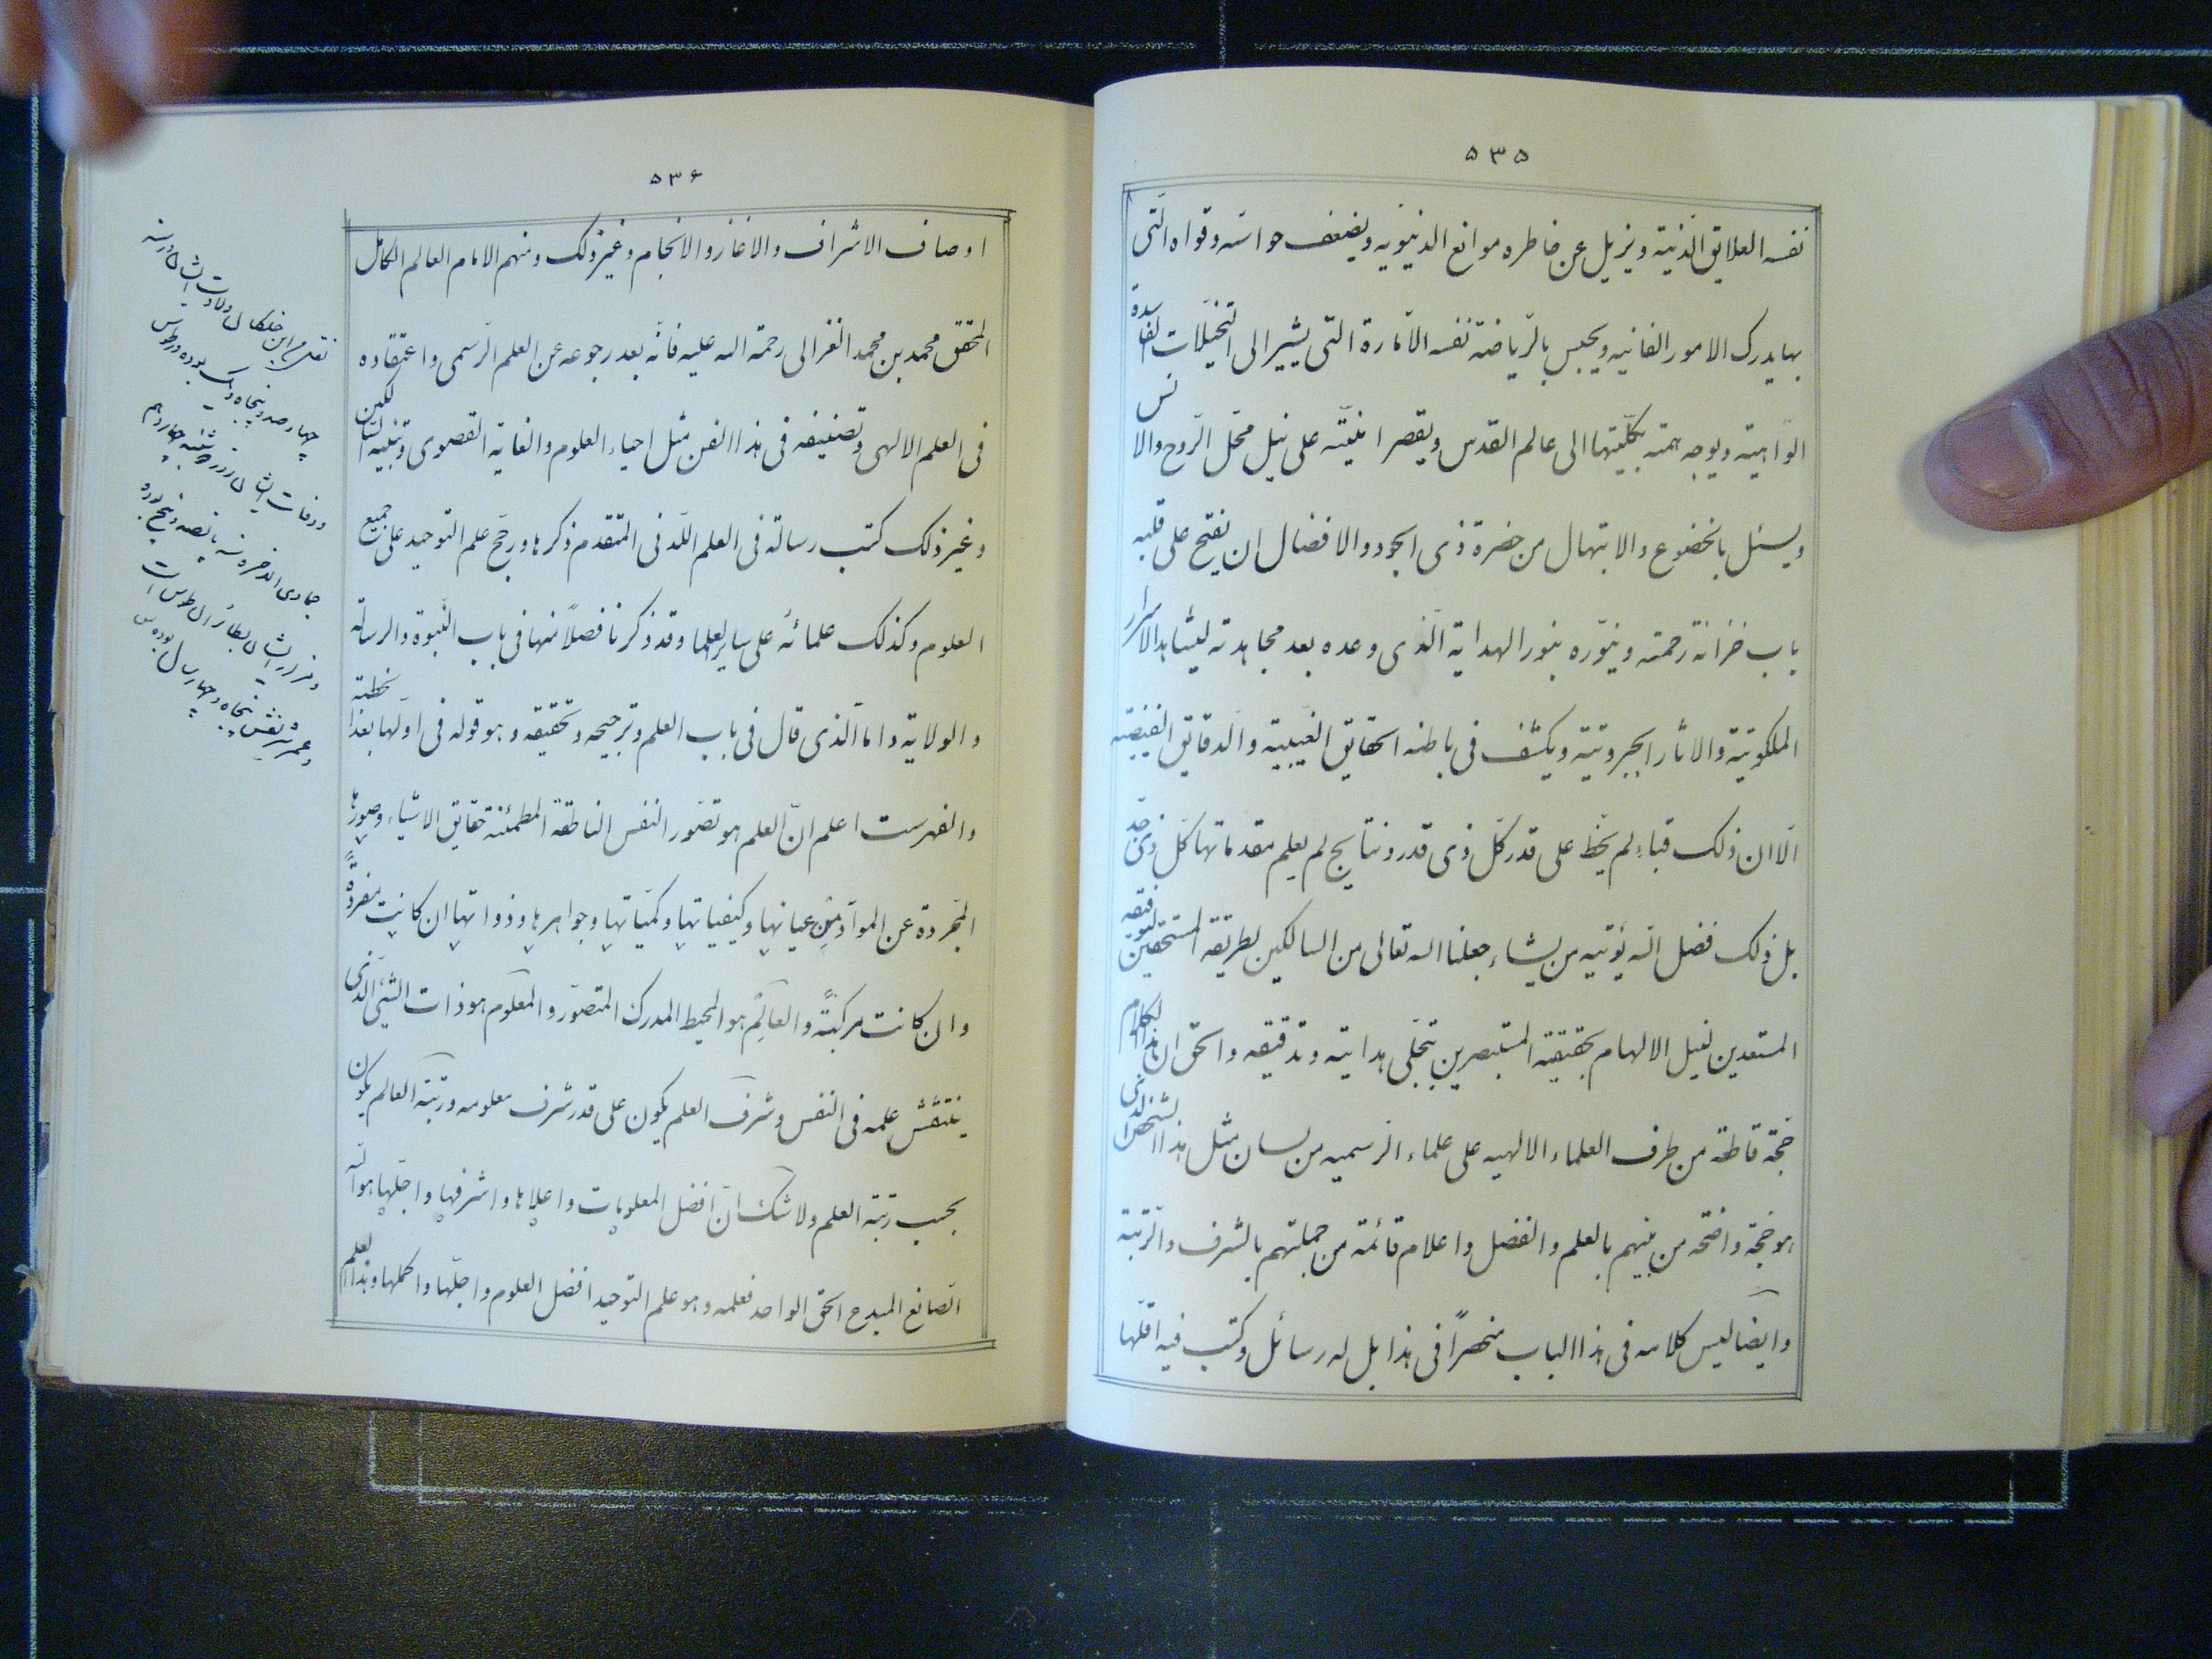 ۵۳۵
نفسه العلایق الدنیّة و یزیل عن خاطره موانع الدنیویّه و یضعف حواسّه و قواه الّتی
بها یدرک الامور الفانیه و یحبس بالرّیاضة نفسه الامّارة التی یشیر الی التخیّلات الفاسدة
الواهیة و یوجه همته بکلّیتها الی عالم القدس و یقصر امنیّته علی نیل محلّ الرّوح والانس
و یسئل بالخضوع والابتهال من حضرة ذی الجود والافضال ان یفتح علی قلبه
باب خزانة رحمته و ینوّره بنور الهدایة الّذی وعده بعد مجاهدته لیشاهد الاسرار
الملکوتیّة والاثار الجبروتیّة و یکشف فی باطنه الحقایق الغیبیّة والدقایق الفیضیّة
الّا ان ذلک قباء لم یخط علی قدر کلّ ذی قدر و نتایج لم یعلم مقدماتها کلّ ذی جدّ
بل ذلک فضل الله یؤتیه من یشاء جعلنا الله تعالی من السالکین لطریقه المستحقین لتوفیقه
المستعدین لنیل الالهام بحقیقته المستبصرین بتجلّی هدایته و تدقیقه والحق ان هذا الکلام
حجّة قاطعة من طرف العلماء الالهیه علی علماء الرسمیه من لسان مثل هذا الشخص الذی
هو حجّة واضحة من بینهم بالعلم والفضل واعلام قائمة من جملتهم بالشرف والرّتبة
وایضا لیس کلامه فی هذا الباب منحصراً فی هذا بل له رسائل و کتب فیه اقلّها
۵۳۶
اوصاف الاشراف والاغاز والانجام وغیر ذلک ومنهم الامام العالم الکامل
المحقق محمد بن محمد الغزالی رحمة الله علیه فانّه بعد رجوعه عن العلم الرّسمی واعتقاده
فی العلم الالهی وتصنیفه فی هذا الفن مثل احیاء العلوم والغایة القصوی وتنبیه السالکین
وغیر ذلک کتب رسالة فی العلم اللّدنی المتقدم ذکرها و رجّح علم التوحید علی جمیع
العلوم وکذلک علمائه علی سایر العلما وقد ذکرنا فصلاً منها فی باب النّبوة والرسالة
والولایة واما الّذی قال فی باب العلم وترجیحه وتحقیقه وهو قوله فی اوّلها بعد الخطبة
والفهرست اعلم انّ العلم هو تصوّر النفس الناطقة المطمئنة حقایق الاشیاء وصورها
المجّردة عن الموادّ باعیانها وکیفیاتها وکمیّاتها وجواهرها وذواتها ان کانت مفردةً
وان کانت مرکبّةً والعالِم هو المحیط المدرک المتصوّر والمعلوم هو ذات الشیّئ الّذی
ینتقش علمه فی النفس وشرف العلم یکون علی قدر شرف معلومه ورتبة العالم یکون
بحسب رتبة العلم ولا شک انّ افضل المعلومات واعلاها واشرفها واجلّها هو الله
الصّانع المبدع الحق الواحد فعلمه وهو علم التوحید افضل العلوم واجلّها واکملها وهذا العلم
ابن خلکان ولادت ایشان در سنه
چهارصد و پنجاه و یک بوده در طوس
و وفات ایشان روز دوشنبه چهاردهم
جمادی الاخره سنه پانصد و پنج بوده
و عمر شریفش پنجاه و چهار سال بوده